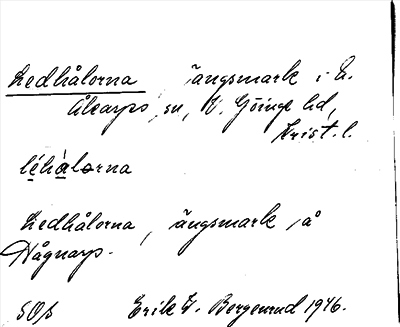 Ledhålorna ängsmark i N.
Åkarps sn, V. Göinge hd,
Krist. l.
léhàlorna
Ledhålorna, ängsmark, å
Hågnarp.
SOS Erik F. Bergenrud 1946.